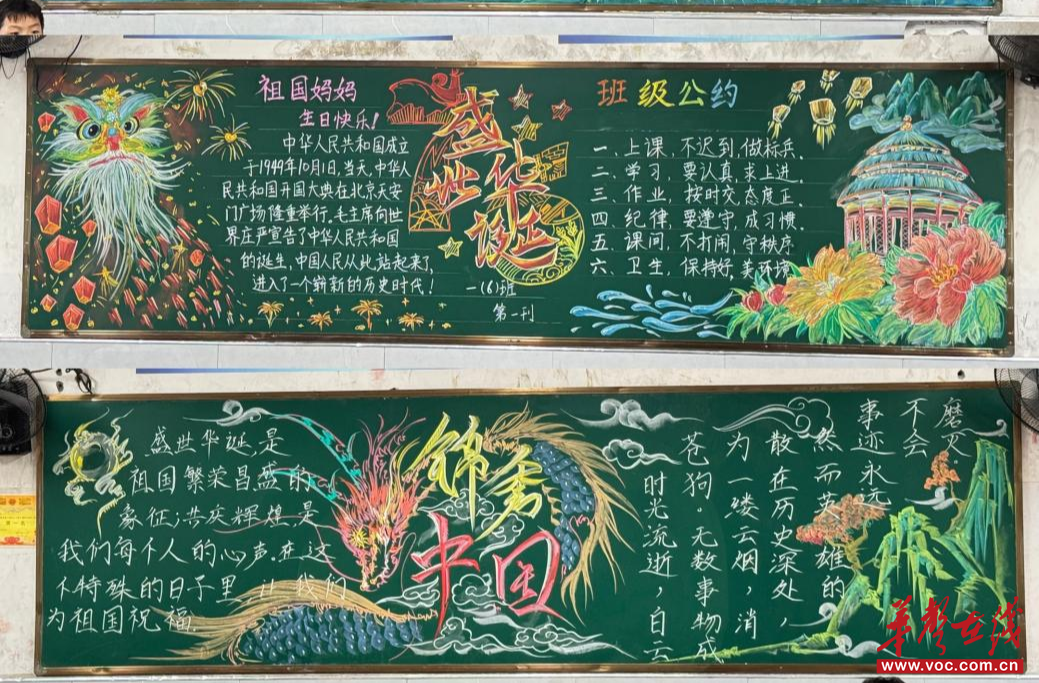 祖国妈妈
生日快乐!
中华人民共和国成立
于1949年10月1日,当天,中华人
民共和国开国大典在北京天安
门广场隆重举行,毛主席向世
界庄严宣告了中华人民共和国
的诞生,中国人民从此站起来了,
进入了一个崭新的历史时代!
盛世华诞
一(6)班
第一刊
班级公约
一、上课,不迟到,做标兵、
二、学习,要认真,求上进、
三、作业,按时交,态度正、
四、纪律,要遵守,成习惯、
五、课间,不打闹,守秩序
六、卫生,保持好,美环境
盛世华诞,是
祖国繁荣昌盛的
象征;共庆辉煌,是
我们每个人的心声.在这
个特殊的日子里,让我们
为祖国祝福
锦秀
中国
时光流逝,白云
苍狗。无数事物成
为一缕云烟,消
散在历史深处,
然而英雄的
事迹永远
不会
磨灭
华声在线
www.voc.com.cn